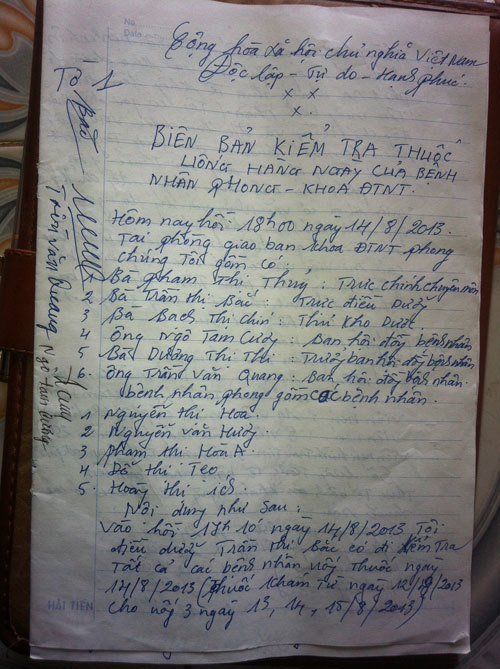 No.
Date
Cộng hòa xã hội chủ nghĩa Việt Nam
Độc lập - Tự do - Hạnh phúc
x x
x
Tờ 1
BIÊN BẢN KIỂM TRA THUỐC
UỐNG HÀNG NGÀY CỦA BỆNH
NHÂN PHONG - KHOA ĐTNT.
Hôm nay hồi: 18h00 ngày 14/8/2013.
Tại phòng giao ban khoa ĐTNT phong
chúng tôi gồm có:
1 Bà Phạm Thị Thuỷ: Trực chính chuyên môn
2 Bà Trần Thị Bắc: Trực điều dưỡng
3 Bà Bạch Thị Chín: Thủ kho Dược
4 Ông Ngô Tam Cường: Ban hội đồng bệnh nhân
5 Bà Dương Thị Thi: Trưởng ban hội đồng bệnh nhân
6. Ông Trần Văn Quang: Ban hội đồng bệnh nhân.
bệnh nhân phong gồm các bệnh nhân.
1 Nguyễn Thị Hoa
2 Nguyễn Văn Hường.
3 Phạm Thị Hoa A.
4 Đỗ Thị Tẹo
5. Hoàng Thị Ích.
Nội dung như sau:
Vào hồi 17h10 ngày 14/8/2013 Tôi
điều dưỡng Trần Thị Bắc có đi kiểm tra
tất cả các bệnh nhân uống thuốc ngày
14/8/2013 (Thuốc khám từ ngày 12/8/2013
cho uống 3 ngày 13, 14, 15/8/2013)
Bắc
Trần Văn Quang
Ngô Tam Cường
HẢI TIẾN